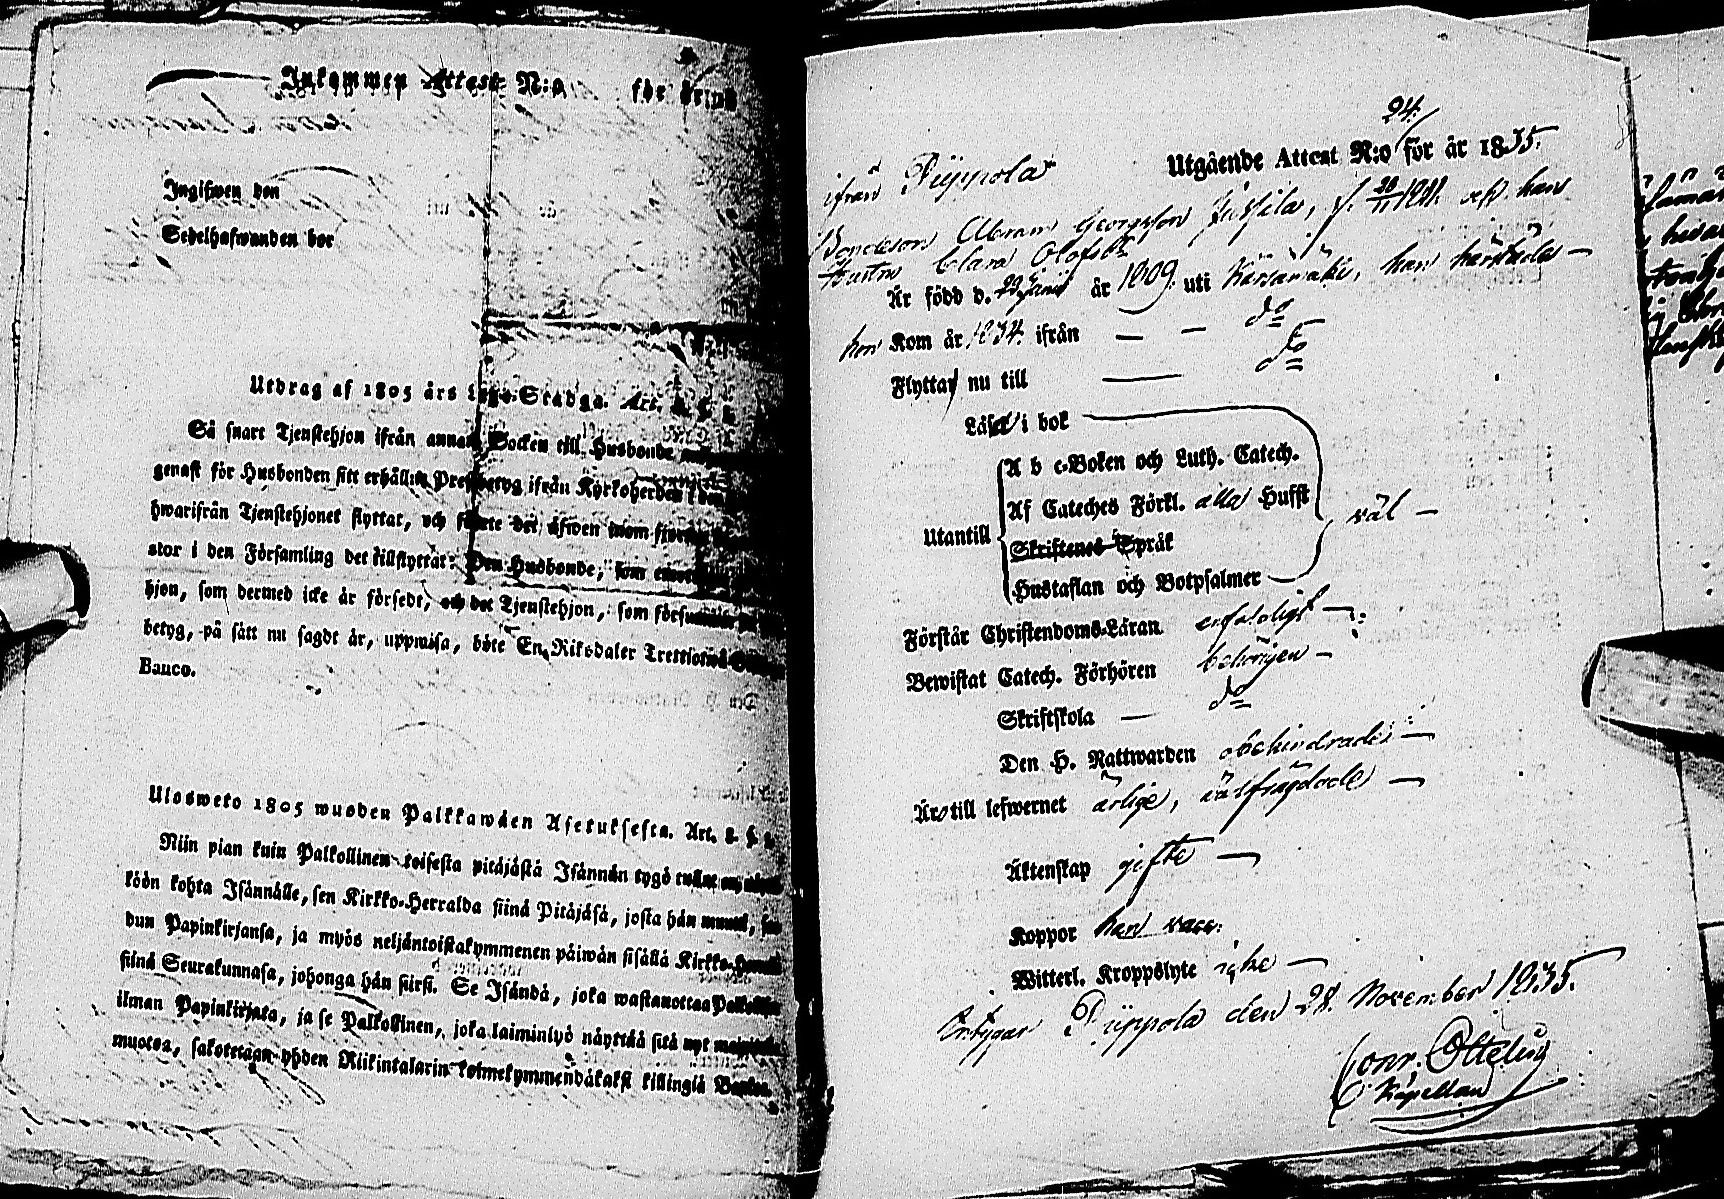 Inkommen Attest N:o för år
Ingifwen den
Sedelhafwanden bor
Utdrag af 1805 års Lego-Stadga. Art. 8. §.
Så snart Tjenstehjon ifrån annan Socken till Husbonde
genast för Husbonden sitt erhållna Prestbetyg ifrån Kyrkoherden i den
hwarifrån Tjenstehjonet flyttar, och sedan det äfwen inom fjorton
stor i den Församling det tillflyttat. Den Husbonde, som emottager
hjon, som dermed icke är försedt, och det Tjenstehjon, som försummar
betyg, på sätt nu sagdt är, uppwisa, böte En Riksdaler Trettiotwå
Banco.
Ulosweto 1805 wuoden Palkkawäen Asetuksesta. Art. 8. §
Niin pian kuin Palkollinen toisesta pitäjästä Isännän tygö
köön kohta Isännälle, sen Kirkko-Herralda siinä Pitäjäsä, josta hän
dun Papinkirjansa, ja myös neljäntoistakymmenen päiwän sisällä Kirkko-
siinä Seurakunnasa, johonga hän siirsi. Se Isändä, joka wastanottaa Palkollisen
ilman Papinkirjata, ja se Palkollinen, joka laiminlyö näyttää sitä nyt
muotoa, sakotetaan yhden Riikintalarin kolmekymmendäkaksi killingiä Banko.
24.
Utgående Attest N:o för år 1835.
ifrån Piippola
Bondeson Abram Georgsson Jussila, f. 1811 och hans
Hustru Clara Olofsdr
Är född d. 23 Junii år 1809. uti Kärsämäki, han härstädes —
hon Kom år 1834. ifrån — — do
Flyttar nu till — do
Läser i bok
A b c-Boken och Luth. Catech.
Af Cateches Förkl. alla Hufst
Utantill väl —
Skriftenes Språk
Hustaflan och Botpsalmer
Förstår Christendoms-Läran. enfaldigt —
Bewistat Catech. Förhören behörigen —
Skriftskola — do
Den H. Nattwarden obehindrade —
Äro till lefwernet ärlige, välfrägdade —
Äktenskap gifte —
Koppor han vacc.
Witterl. Kroppslyte icke —
Betygar Piippola den 28. November 1835.
Conr. Ottelin
Kapellan